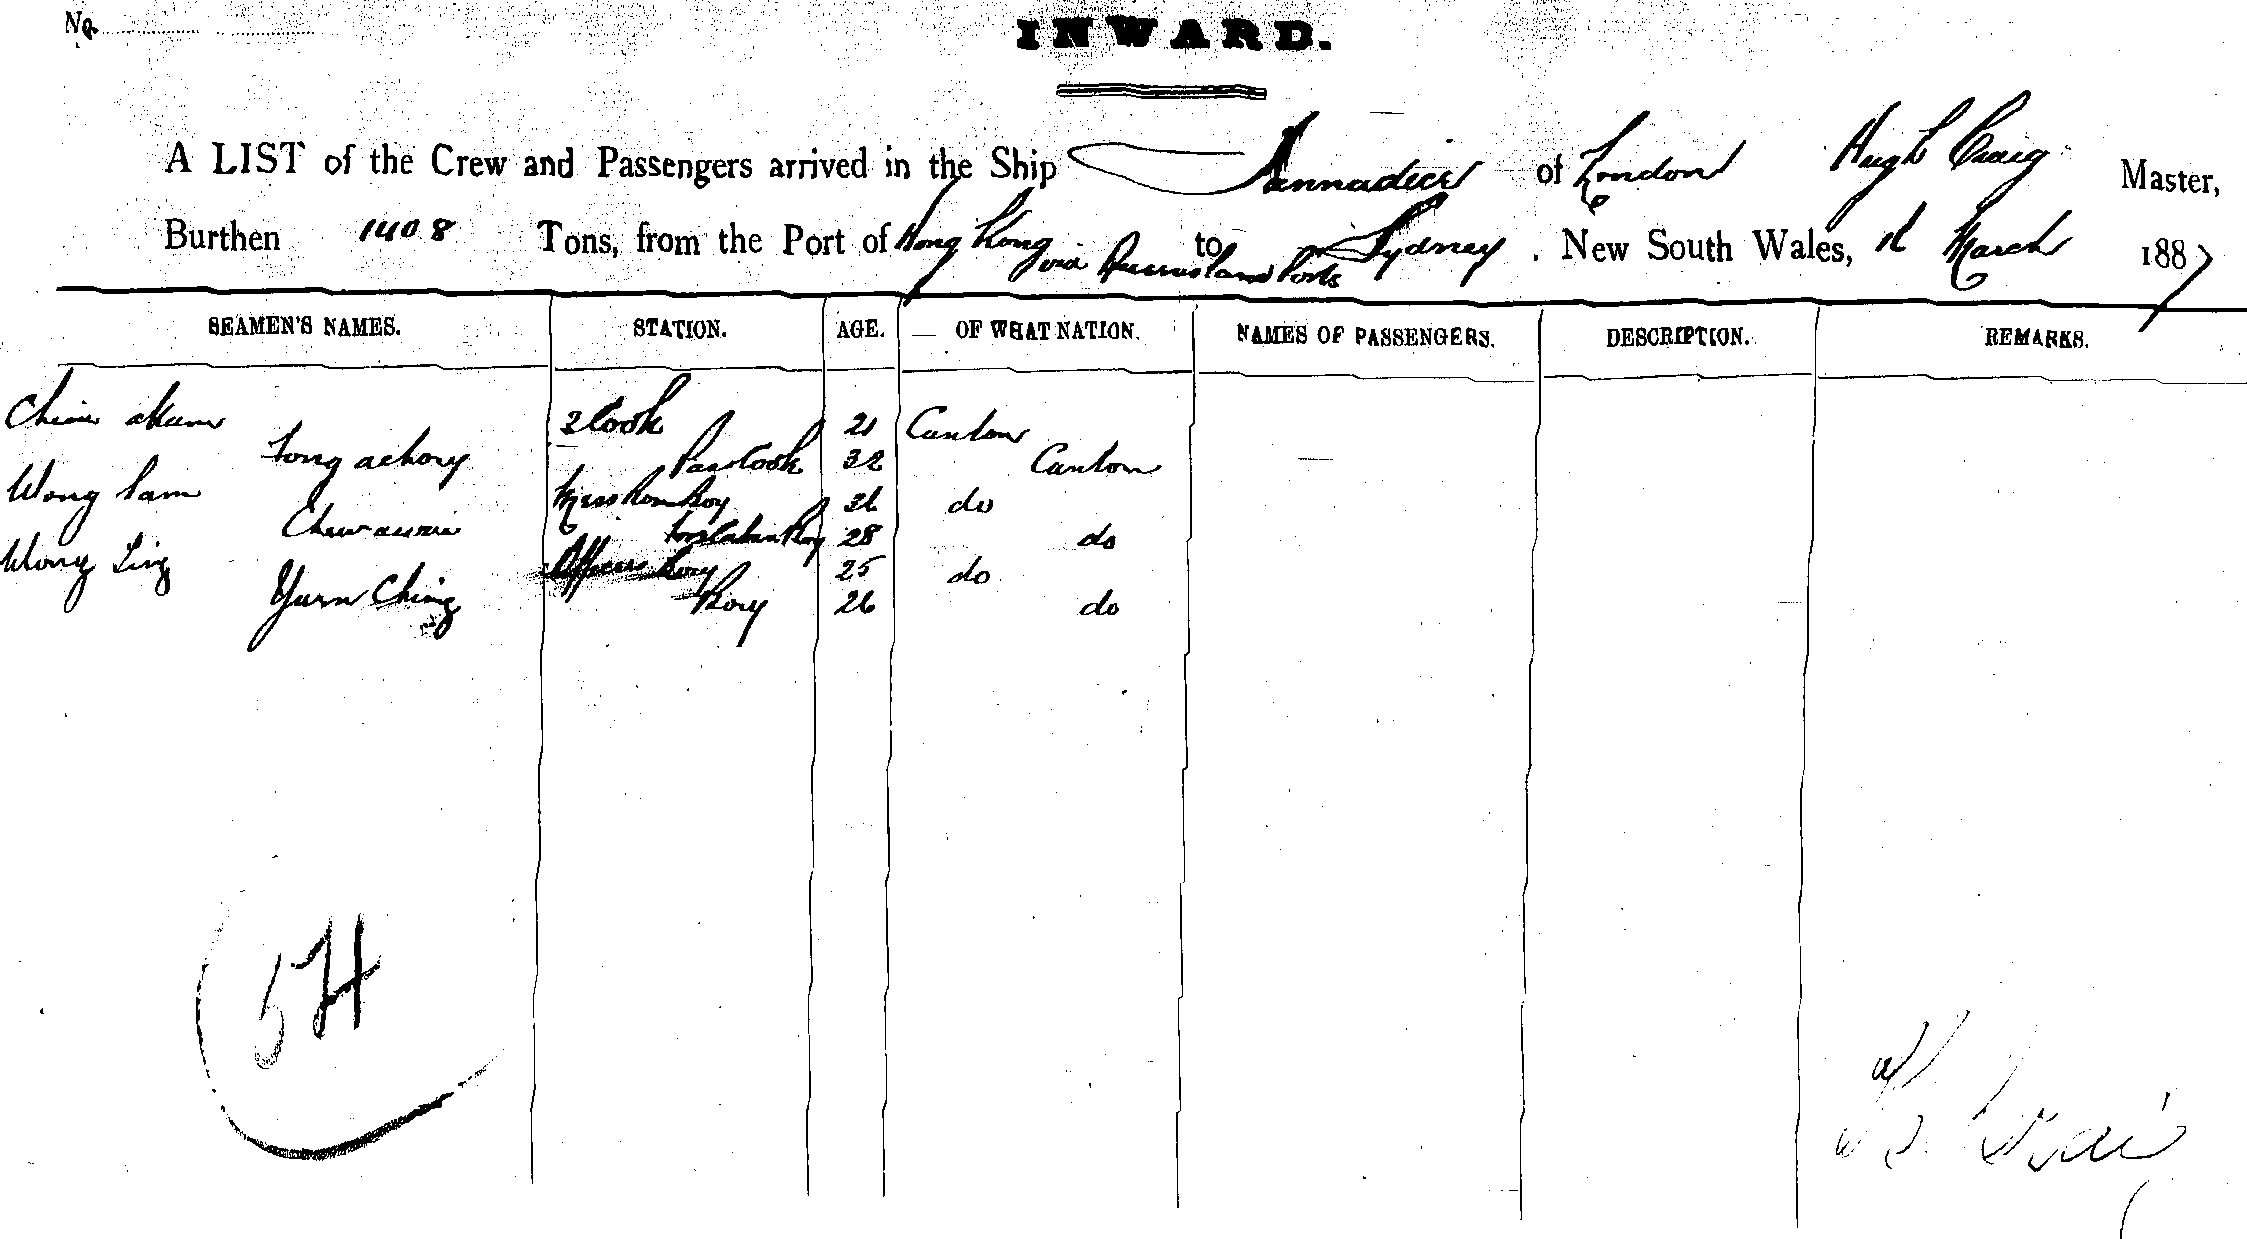 No.
INWARD.
A LIST of the Crew and Passengers arrived in the Ship Tannadice of London Hugh Craig Master,
Burthen 1408 Tons, from the Port of Hong Kong via Queensland Ports to Sydney. New South Wales, March 1887
SEAMEN'S NAMES. STATION. AGE. OF WHAT NATION. NAMES OF PASSENGERS. DESCRIPTION. REMARKS.
2 Cook 21 Canton
Tong achoy Pass Cook 32 Canton
Wong Sam Mess Room Boy do
28 do
Wong Ling Officers Boy 25 do
Yuen Ching Boy 26 do
54